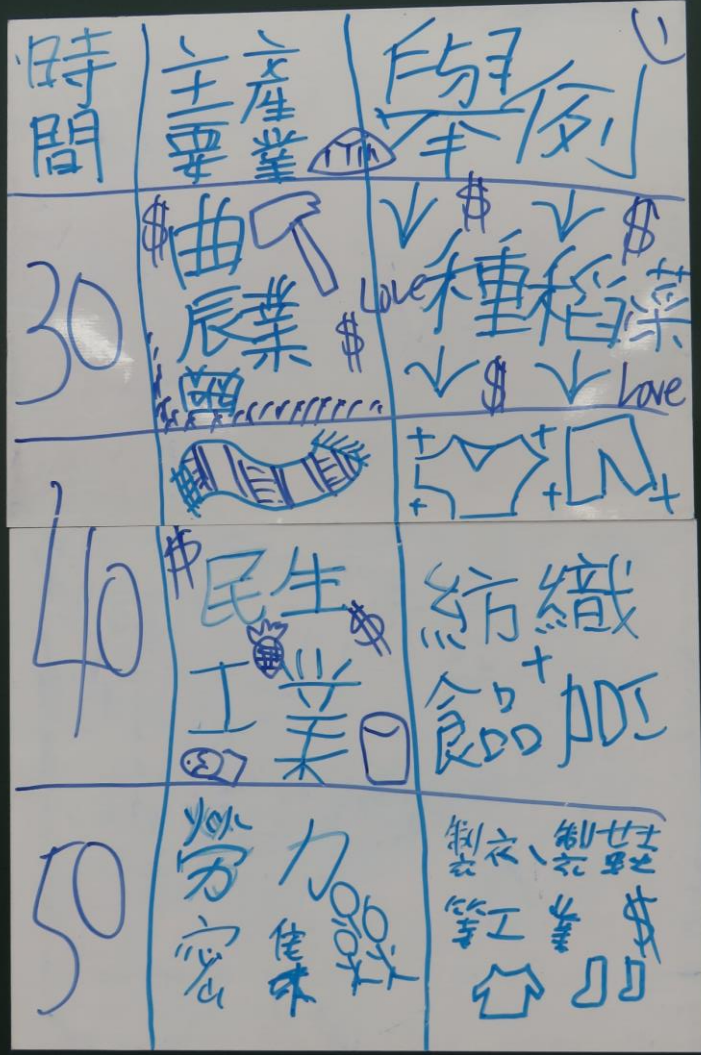 時間
主要
產業
舉例
30
$
農
業
$
$ $
Love 種稻菜
$ Love
40
$ 民生
工業 $
紡織
+
食品加工
50
勞力
密集
製衣、製鞋
等工業 $